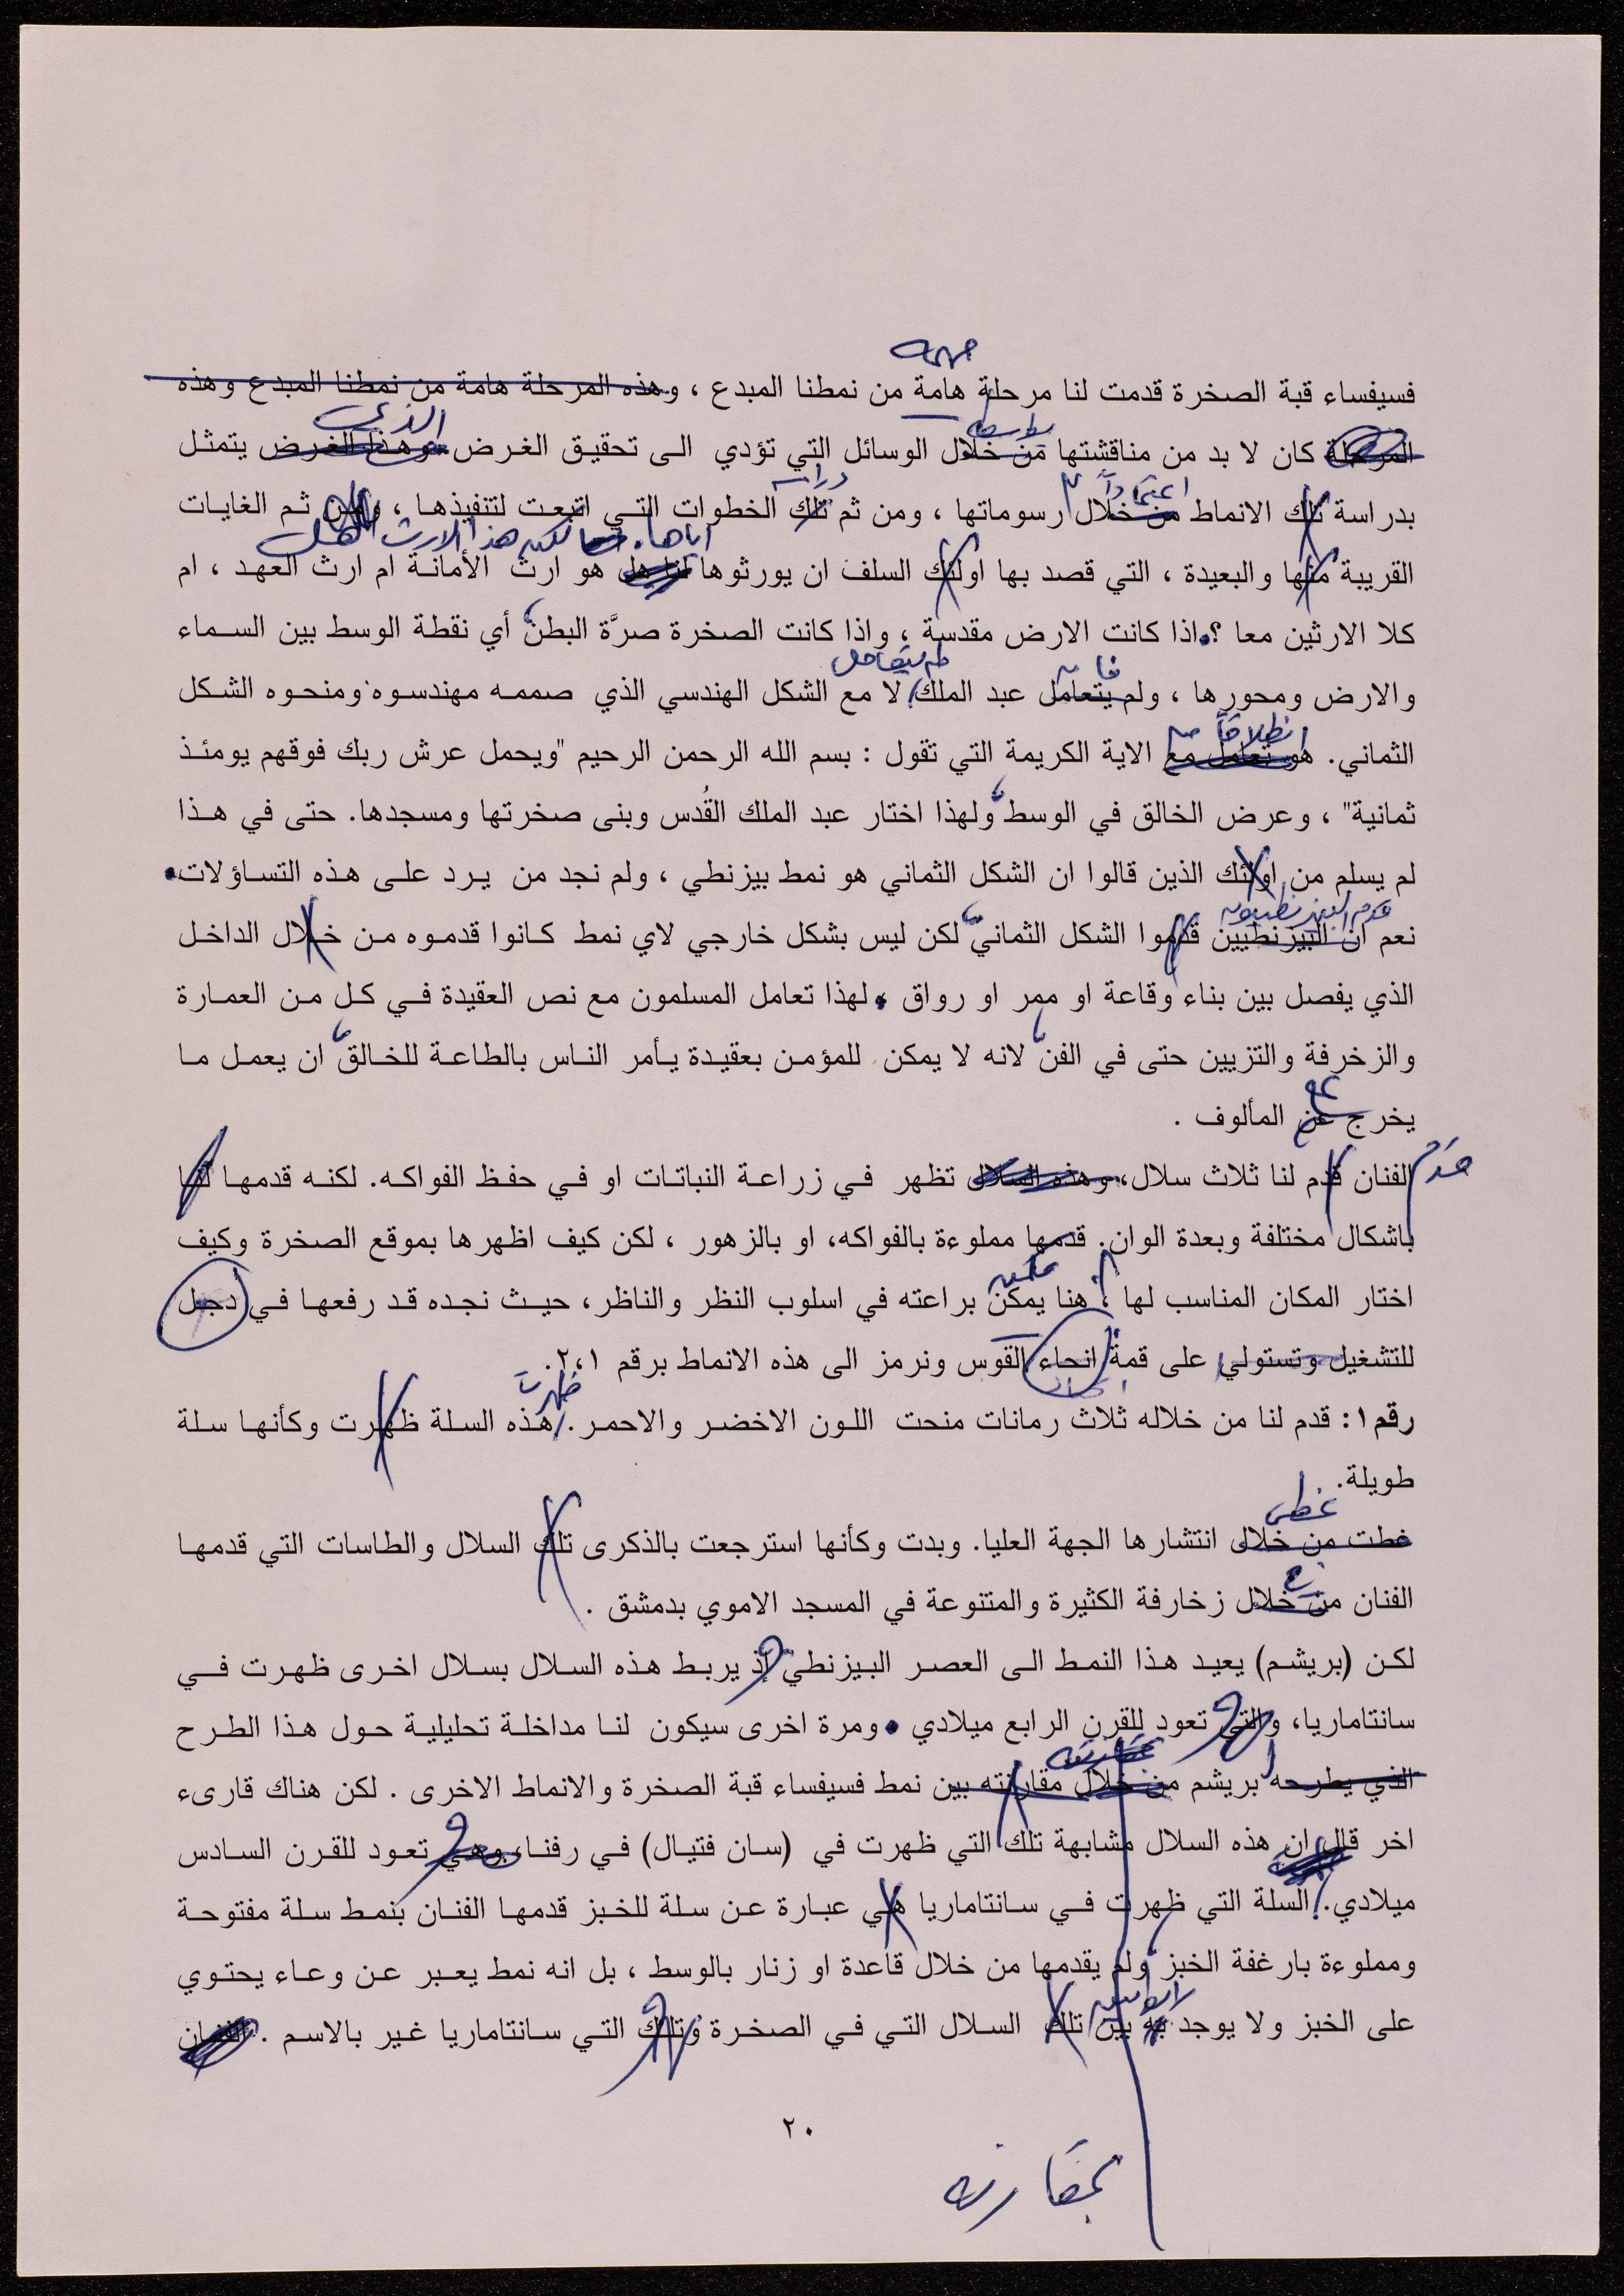 مهمة
فسيفساء قبة الصخرة قدمت لنا مرحلة هامة من نمطنا المبدع ، وهذه المرحلة هامة من نمطنا المبدع وهذه
بواسطة الذي
المرحلة كان لا بد من مناقشتها من خلال الوسائل التي تؤدي الى تحقيق الغرض وهذا الغرض يتمثل
اعتماداً دراسة
بدراسة تلك الانماط من خلال رسوماتها ، ومن ثم تلك الخطوات التي اتبعت لتنفيذها ، ومن ثم الغايات
اياها. لكن هذا الارث هل
القريبة منها والبعيدة ، التي قصد بها اولئك السلف ان يورثوها لنا هل هو ارث الأمانة ام ارث العهد ، ام
كلا الارثين معا ؟ اذا كانت الارض مقدسة ، واذا كانت الصخرة صرَّة البطن أي نقطة الوسط بين السماء
لم يتعامل
والارض ومحورها ، ولم يتعامل عبد الملك لا مع الشكل الهندسي الذي صممه مهندسوه ومنحوه الشكل
انطلاقاً من
الثماني. هو تعامل مع الاية الكريمة التي تقول : بسم الله الرحمن الرحيم "ويحمل عرش ربك فوقهم يومئذ
ثمانية" ، وعرض الخالق في الوسط ولهذا اختار عبد الملك القُدس وبنى صخرتها ومسجدها. حتى في هذا
لم يسلم من اولئك الذين قالوا ان الشكل الثماني هو نمط بيزنطي ، ولم نجد من يرد على هذه التساؤلات.
قدم البيزنطيون
نعم ان البيزنطيين قدموا الشكل الثماني لكن ليس بشكل خارجي لاي نمط كانوا قدموه من خلال الداخل
الذي يفصل بين بناء وقاعة او ممر او رواق . لهذا تعامل المسلمون مع نص العقيدة في كل من العمارة
والزخرفة والتزيين حتى في الفن لانه لا يمكن للمؤمن بعقيدة يأمر الناس بالطاعة للخالق ان يعمل ما
عن
يخرج عن المألوف .
قدم
الفنان قدم لنا ثلاث سلال، وهذه السلال تظهر في زراعة النباتات او في حفظ الفواكه. لكنه قدمها لنا
باشكال مختلفة وبعدة الوان. قدمها مملوءة بالفواكه، او بالزهور ، لكن كيف اظهرها بموقع الصخرة وكيف
اختار المكان المناسب لها ، هنا يمكن براعته في اسلوب النظر والناظر، حيث نجده قد رفعها في دجل
للتشغيل وتستولي على قمة انحاء القوس ونرمز الى هذه الانماط برقم ٢،١.
ظهرت
رقم ١: قدم لنا من خلاله ثلاث رمانات منحت اللون الاخضر والاحمر. هذه السلة ظهرت وكأنها سلة
طويلة.
غطى
غطت من خلال انتشارها الجهة العليا. وبدت وكأنها استرجعت بالذكرى تلك السلال والطاسات التي قدمها
الفنان من خلال زخارفة الكثيرة والمتنوعة في المسجد الاموي بدمشق .
لكن (بريشم) يعيد هذا النمط الى العصر البيزنطي إذ يربط هذه السلال بسلال اخرى ظهرت في
سانتاماريا، والتي تعود للقرن الرابع ميلادي . ومرة اخرى سيكون لنا مداخلة تحليلية حول هذا الطرح
الذي يطرحه بريشم من خلال مقارنته بين نمط فسيفساء قبة الصخرة والانماط الاخرى . لكن هناك قارىء
اخر قال ان هذه السلال مشابهة تلك التي ظهرت في (سان فتيال) في رفنا، وهي تعود للقرن السادس
ميلادي. السلة التي ظهرت في سانتاماريا هي عبارة عن سلة للخبز قدمها الفنان بنمط سلة مفتوحة
ومملوءة بارغفة الخبز ولم يقدمها من خلال قاعدة او زنار بالوسط ، بل انه نمط يعبر عن وعاء يحتوي
على الخبز ولا يوجد به بين تلك السلال التي في الصخرة وتلك التي سانتاماريا غير بالاسم . الفنان
٢٠
بمقارنة